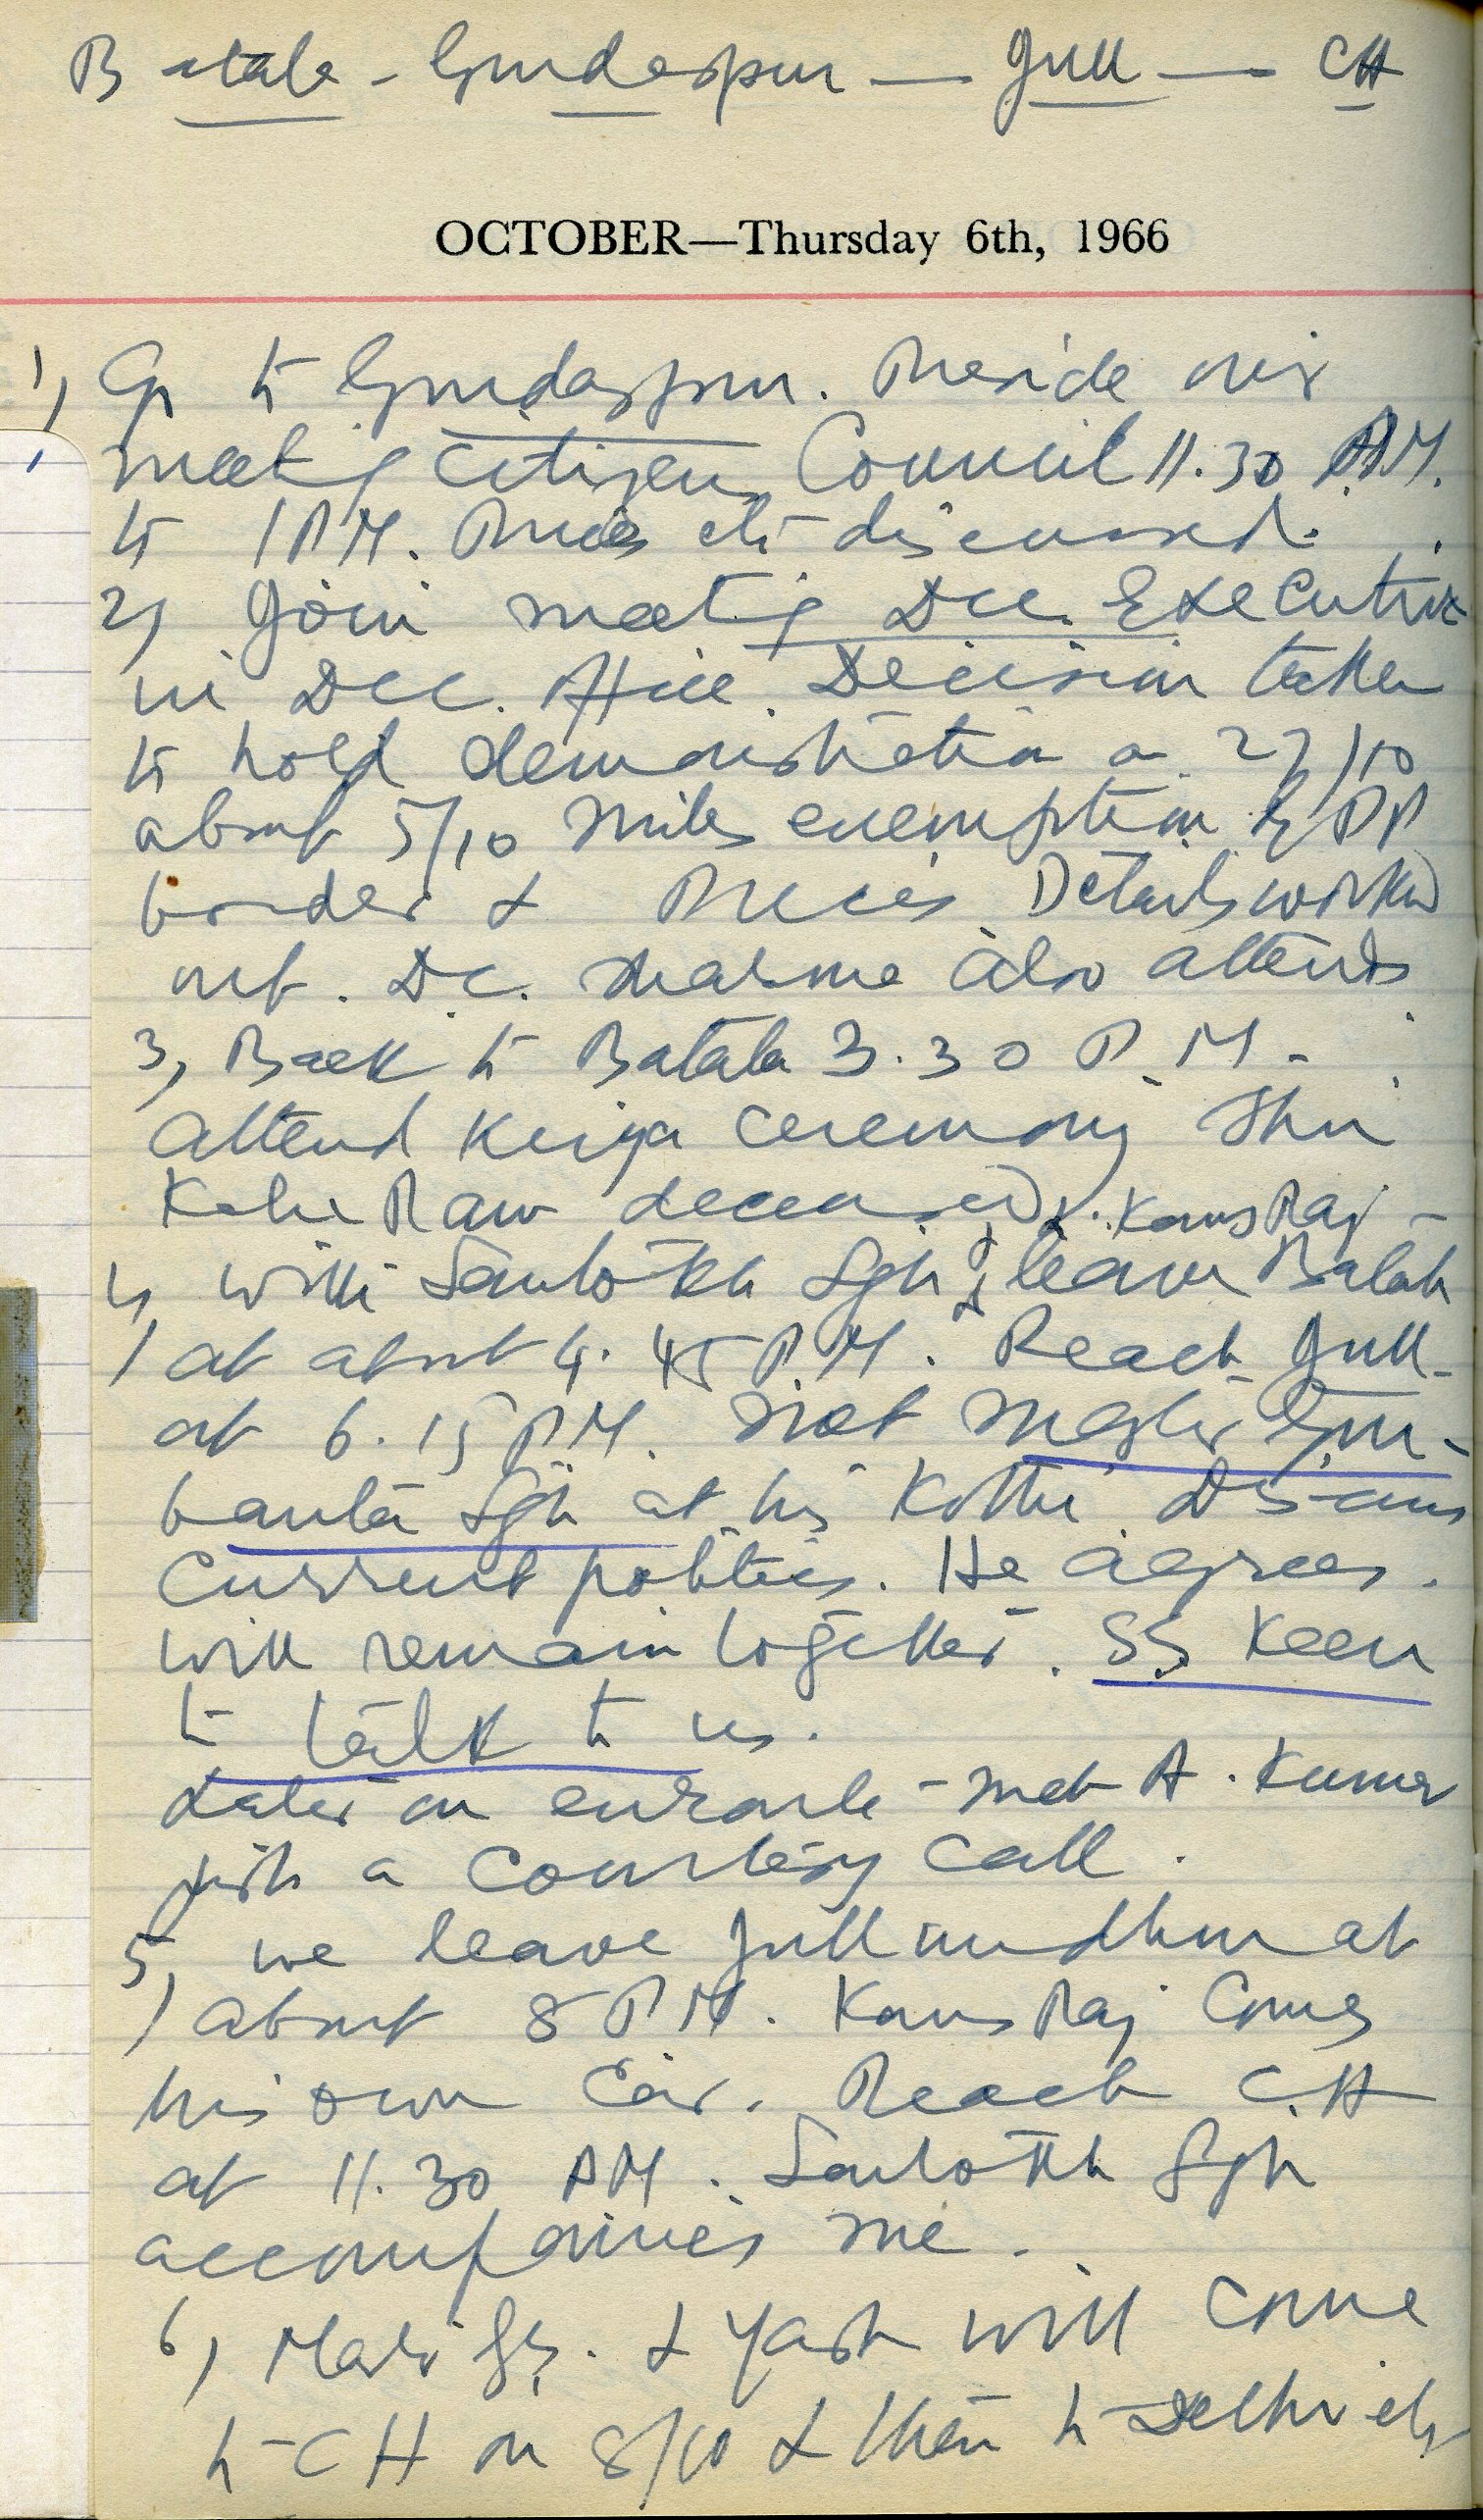 Batala - Gurdaspur — Jull — CH
OCTOBER—Thursday 6th, 1966
1) Go to Gurdaspur. Preside over
meeting Citizen Council 11.30 AM.
to 1 PM. Prices etc discussed.
2) Join meeting DCC. Executive
in DCC. Office. Decision taken
to hold demonstration on 27/10
about 5/10 miles exemption of PP
border & Prices Details worked
out. D.C. Sharma also attends
3, Back to Batala 3.30 P.M -
attend Kriya ceremony Shri
Ram deceased. & Kans Raj -
4, with Santokh Sgh & leave Batala
at about 4.45 P.M. Reach Jull-
at 6.15 PM. Met Master Gur-
banta Sgh at his Kothi. Discuss
Current politics. He agrees.
will remain together. SS Keen
to talk to us.
Later on enroute - met A. Kumar
just a Courtesy Call.
5, we leave Jullundhur at
about 8 PM. Kans Raj Comes
his own Car. Reach C.H
at 11.30 PM. Santokh Sgh
accompanies me.
6, Master GS. & Yash will come
to CH on 8/10 & then to Delhi etc